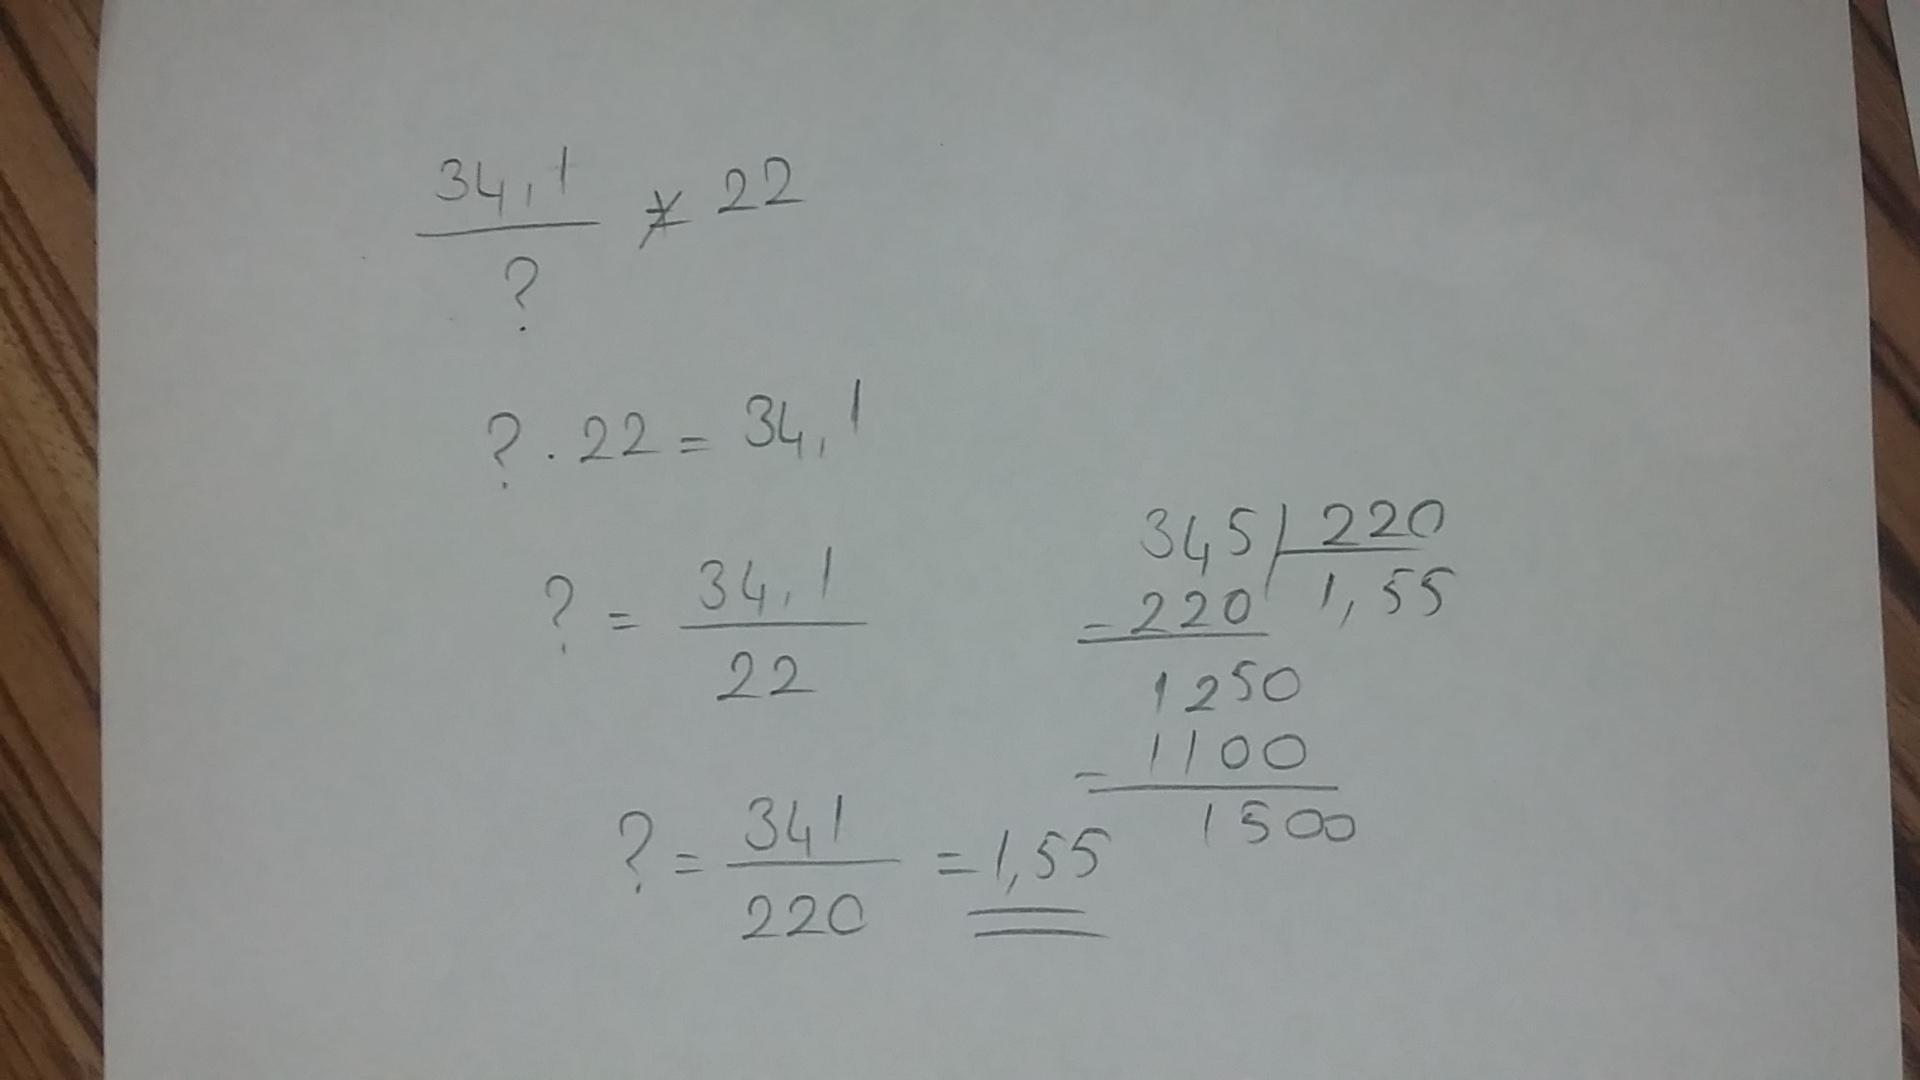 34,1
* 22
?
? . 22 = 34,1
? = 34,1
22
? = 341 = 1,55
220
345 220
- 220 1,55
1250
- 1100
1500